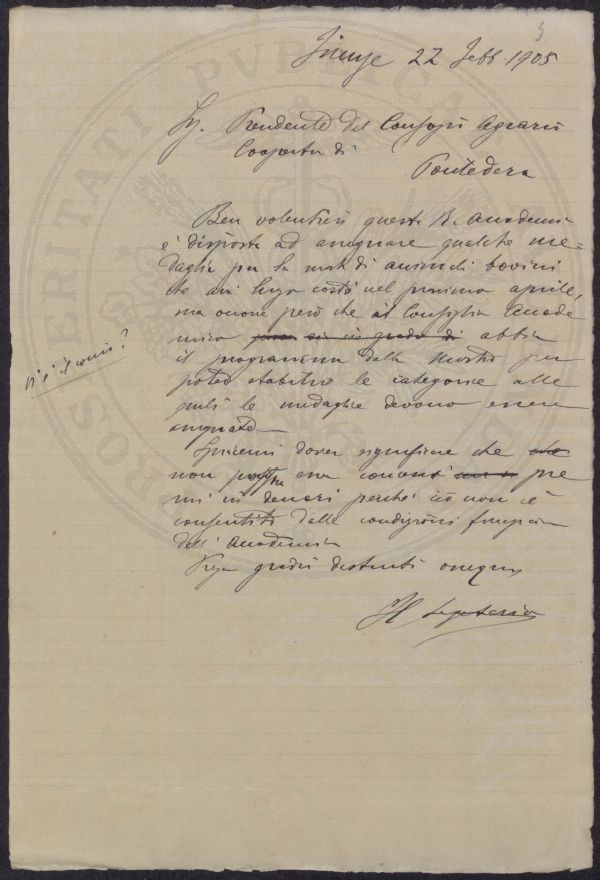 5
Firenze 22 Febb 1905
Sig. Presidente del Consorzio Agrario
Cooperativo di
Pontedera
Ben volentieri questa R. Accademia
è disposta ad assegnare qualche me-
daglia per la mostra di animali bovini
che avrà luogo costà nel prossimo aprile,
ma occorre però che il Consiglio Accade
mico abbia
il programma della Mostra per
poter stabilire le categorie alle
quali le medaglie devono essere
assegnate
Spiacemi dover significare che che
non possa essa
mi in denari perché ciò non è
consentito dalle condizioni
dell'Accademia
Prego gradir distinti ossequi
Il Segretario
V'è il conio?
PVBLICAE